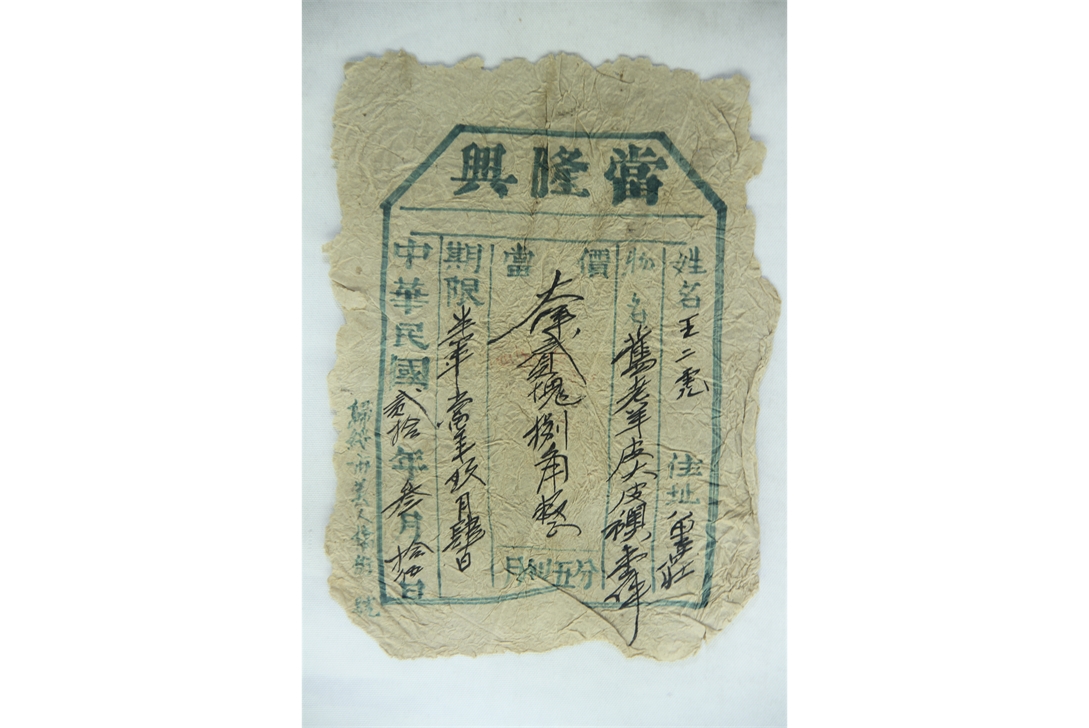 興隆當
姓名王二虎 住址
物名舊老羊皮大皮襖壹件
價當 貳塊捌角整
分五利月
期限半年當年玖月肆日
中華民國貳拾年叁月拾伍日